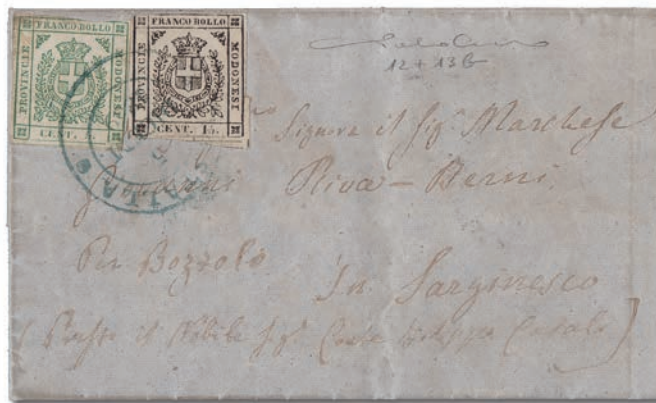 FRANCO BOLLO
PROVINCIE
MODONESI
CENT. 5.
FRANCO BOLLO
PROVINCIE
MODONESI
CENT. 15.
12 + 13b
Signore il Sig. Marchese
Giovanni Riva-Berni
Per Bozzolo
In Sarginesco
(Presso il Nobile Sig. Conte Casali)